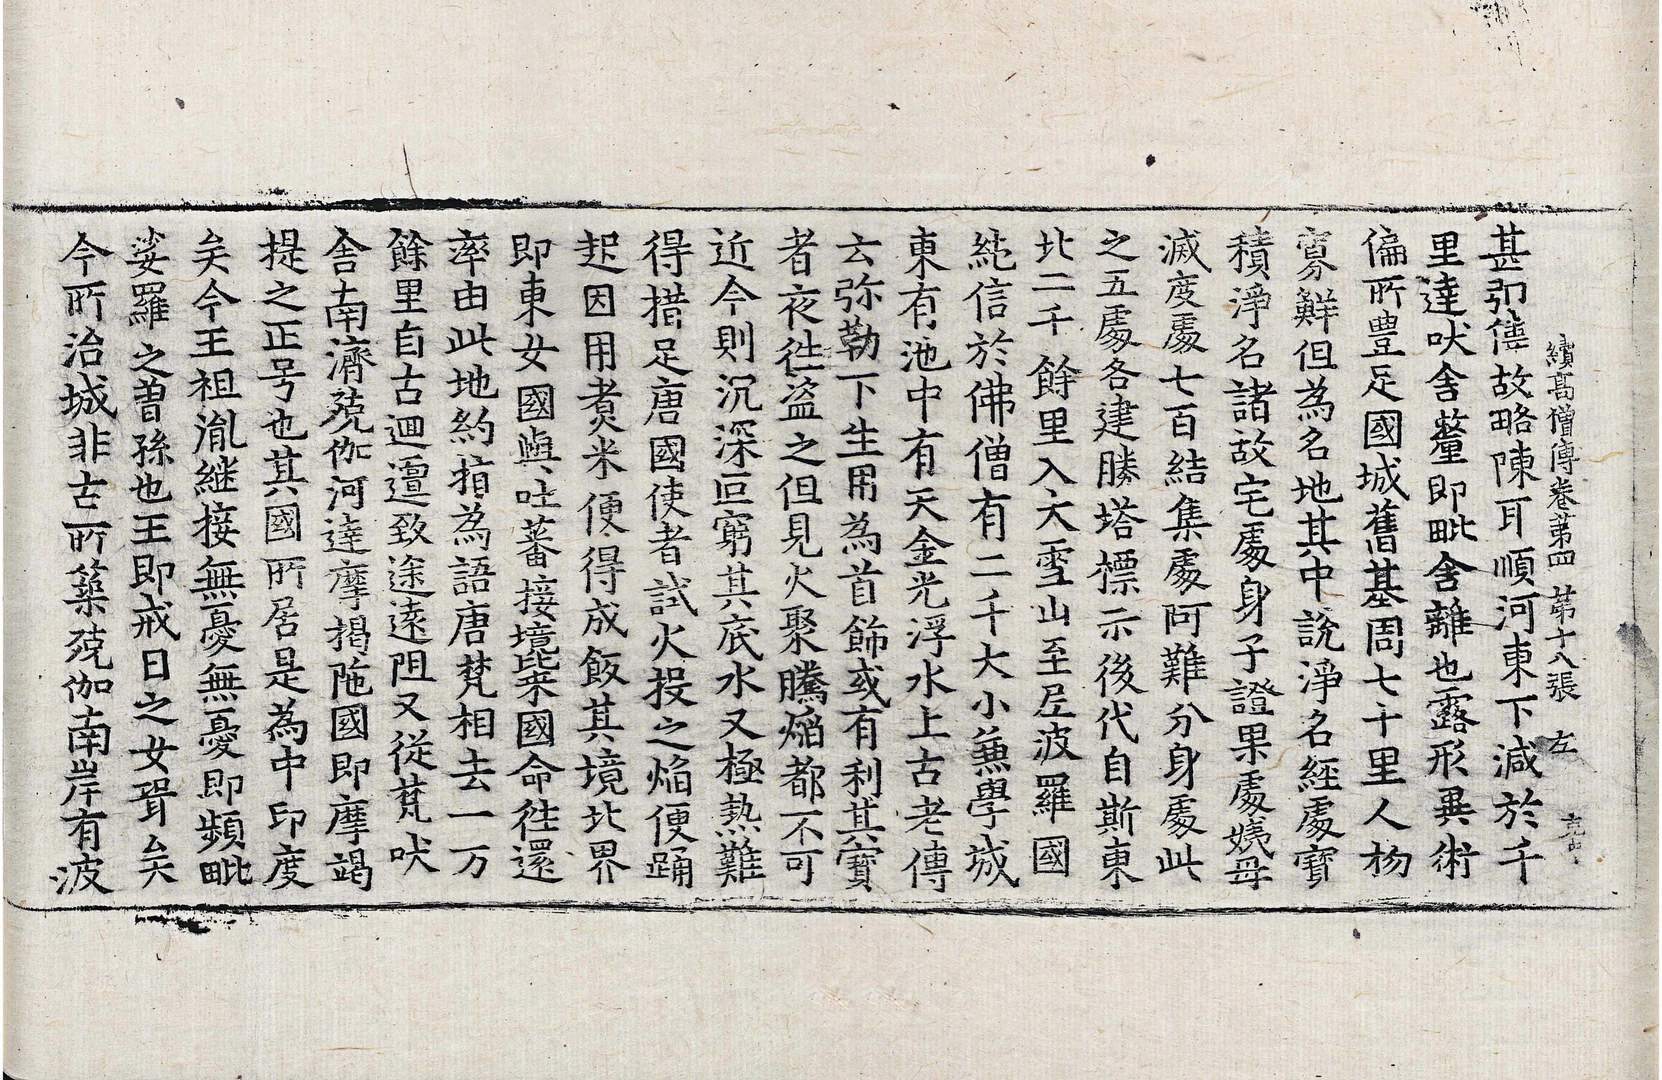 續高僧傳卷第四 第十八張 左
甚引傳故略陳耳順河東下減於千
里達吠舍釐即毗舍離也露形異術
偏所豊足國城舊基周七十里人物
寡鮮但為名地其中說淨名經處寶
積淨名諸故宅處身子證果處姨母
滅度處七百結集處阿難分身處此
之五處各建勝塔標示後代自斯東
北二千餘里入大雪山至尼波羅國
純信於佛僧有二千大小兼學城
東有池中有天金光浮水上古老傳
云弥勒下生用為首飾或有利其寶
者夜往盜之但見火聚騰焰都不可
近今則沉深叵窮其底水又極熱難
得措足唐國使者試火投之焰便踊
起因用煮米便得成飯其境北界
即東女國與吐蕃接境比來國命往還
率由此地約指為語唐梵相去一万
餘里自古迴邅致途遠阻又從梵吠
舍南濟殑伽河達摩揭陁國即摩竭
提之正号也其國所居是為中印度
矣今王祖胤継接無憂無憂即頻毗
娑羅之曽孫也王即戒日之女壻矣
今所治城非古所築殑伽南岸有波